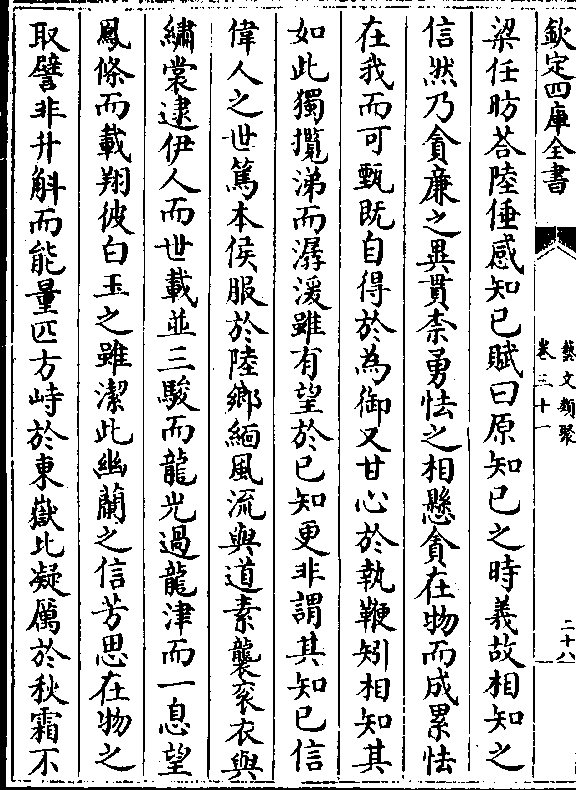 欽定四庫全書
藝文類聚
卷三十一
二十八
梁任昉荅陸倕感知己賦曰原知己之時義故相知之
信然乃貪廉之異貫柰勇怯之相懸貪在物而成累怯
在我而可甄既自得於為御又甘心於執鞭矧相知其
如此獨攬涕而潺湲雖有望於已知更非謂其知己信
偉人之世篤本侯服於陸鄉緬風流與道素襲衮衣與
繡裳逮伊人而世載並三駿而龍光過龍津而一息望
鳳條而載翔彼白玉之雖潔此幽蘭之信芳思在物之
取譬非升斛而能量匹方峙於東嶽比凝厲於秋霜不